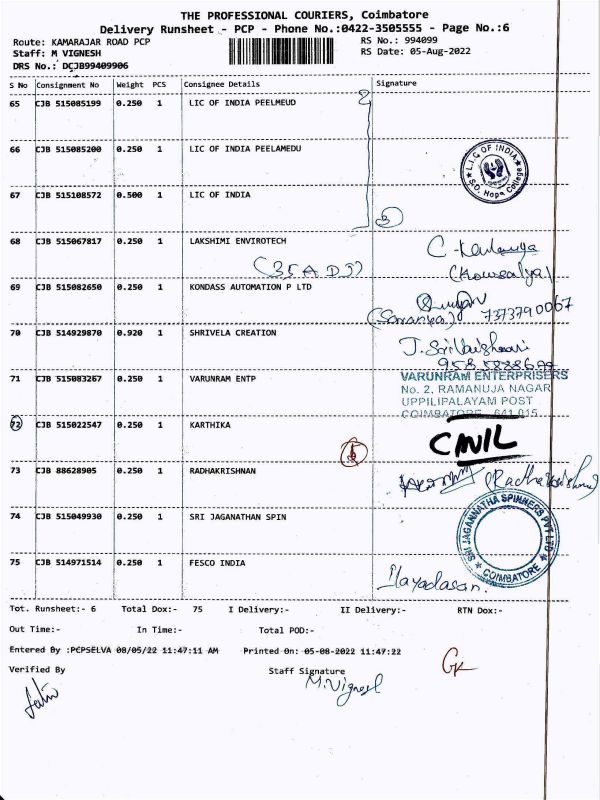 THE PROFESSIONAL COURIERS, Coimbatore
Delivery Runsheet - PCP - Phone No.:0422-3505555 - Page No.:6
Route: KAMARAJAR ROAD PCP
RS No.: 994099
Staff: M VIGNESH
RS Date: 05-Aug-2022
DRS No.: DCJB99409906
S No Consignment No Weight PCS Consignee Details Signature
65 CJB 515085199 0.250 1 LIC OF INDIA PEELMEUD
66 CJB 515085200 0.250 1 LIC OF INDIA PEELAMEDU
L.I.C OF INDIA
S.O. Hope College
67 CJB 515108572 0.500 1 LIC OF INDIA
3
68 CJB 515067817 0.250 1 LAKSHIMI ENVIROTECH
(Kowsalya)
69 CJB 515082650 0.250 1 KONDASS AUTOMATION P LTD
7373790067
70 CJB 514929870 0.920 1 SHRIVELA CREATION
71 CJB 515083267 0.250 1 VARUNRAM ENTP
VARUNRAM ENTERPRISERS
No. 2, RAMANUJA NAGAR
UPPILIPALAYAM POST
COIMBATORE - 641 015
72 CJB 515022547 0.250 1 KARTHIKA
73 CJB 88628905 0.250 1 RADHAKRISHNAN
(Radhakrishnan)
74 CJB 515049930 0.250 1 SRI JAGANATHAN SPIN
SRI JAGANNATHA SPINNERS PVT LTD
COIMBATORE
75 CJB 514971514 0.250 1 FESCO INDIA
Ilayadasan.
Tot. Runsheet:- 6 Total Dox:- 75 I Delivery:- II Delivery:- RTN Dox:-
Out Time:- In Time:- Total POD:-
Entered By :PCPSELVA 08/05/22 11:47:11 AM Printed On: 05-08-2022 11:47:22
Verified By Staff Signature
M.Vignesh